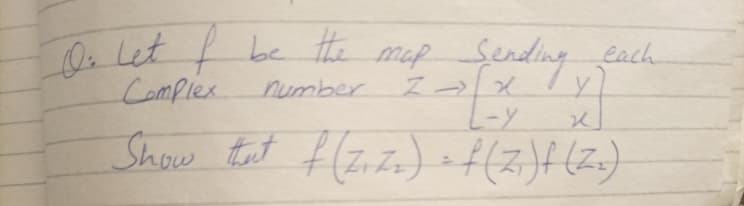 Q: Let f be the map Sending each
Complex number Z → [x y
-y x]
Show that f(Z₁Z₂) = f(Z₁)f(Z₂)